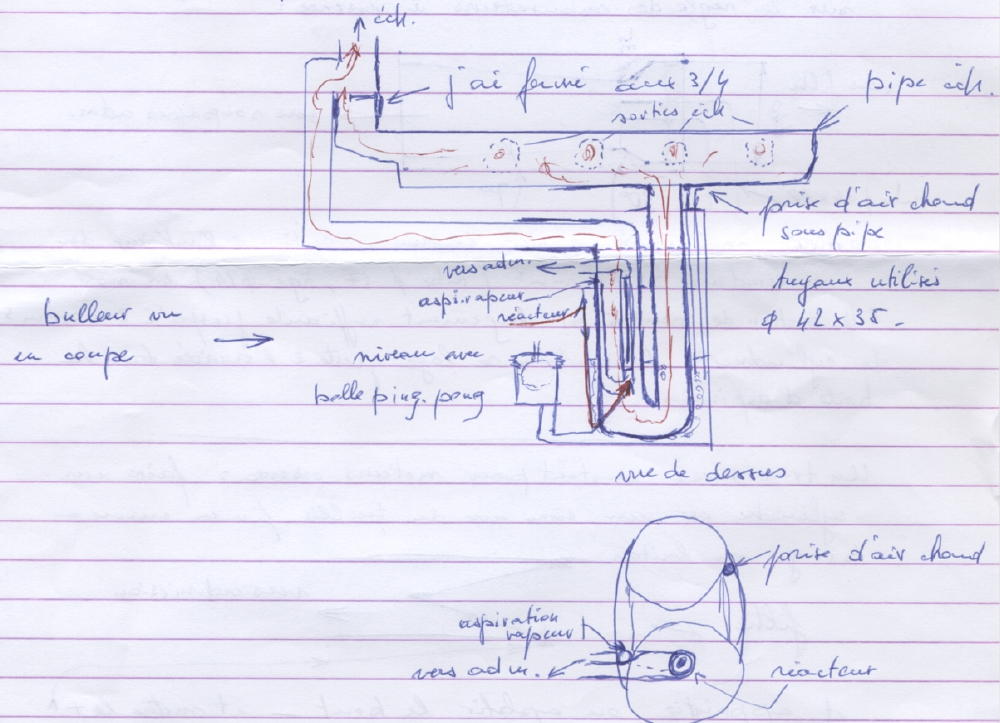 éch.
j'ai fermé aux 3/4
pipe éch.
sorties éch.
prise d'air chaud
sous pipe
vers adm.
aspi. vapeur
réacteur
tuyaux utilisés
φ 42 x 35 -
bulleur vu
en coupe
niveau avec
balle ping. pong
vue de dessus
prise d'air chaud
aspiration
vapeur
vers adm.
réacteur